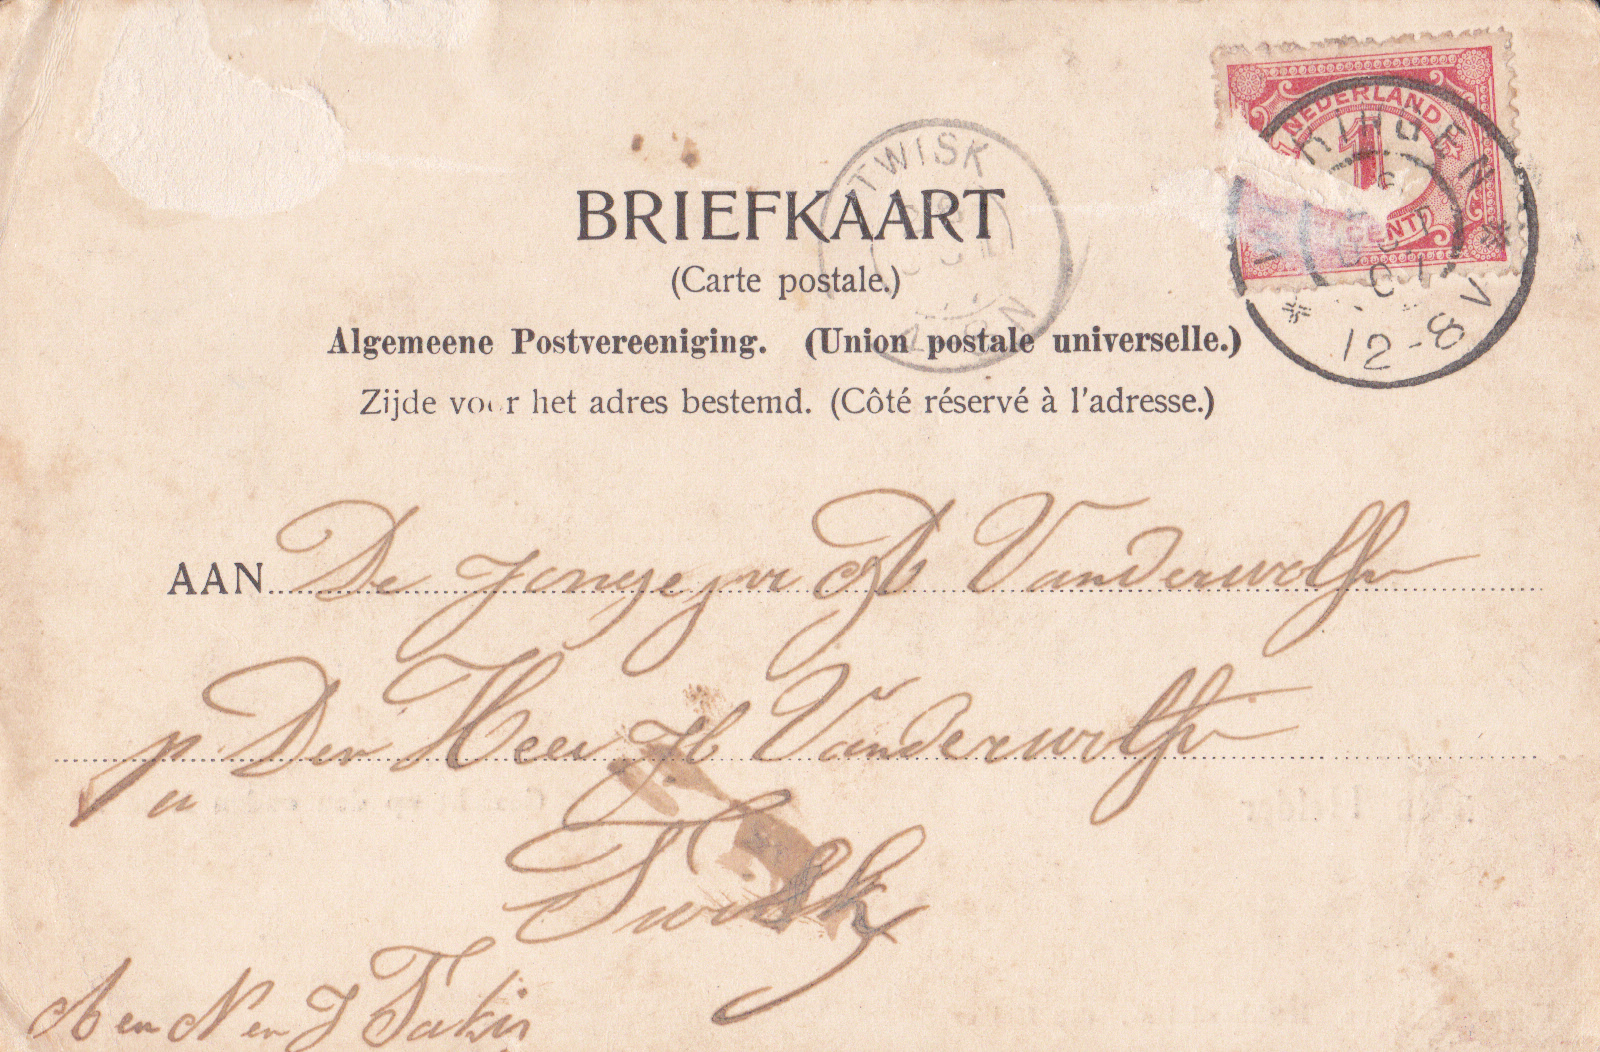 NEDERLAND
1
CENT
12-8V
TWISK
BRIEFKAART
(Carte postale.)
Algemeene Postvereeniging. (Union postale universelle.)
Zijde voor het adres bestemd. (Côté réservé à l'adresse.)
AAN De Vanderwolf
Den Heer Vanderwolf
Twisk
A en N en J